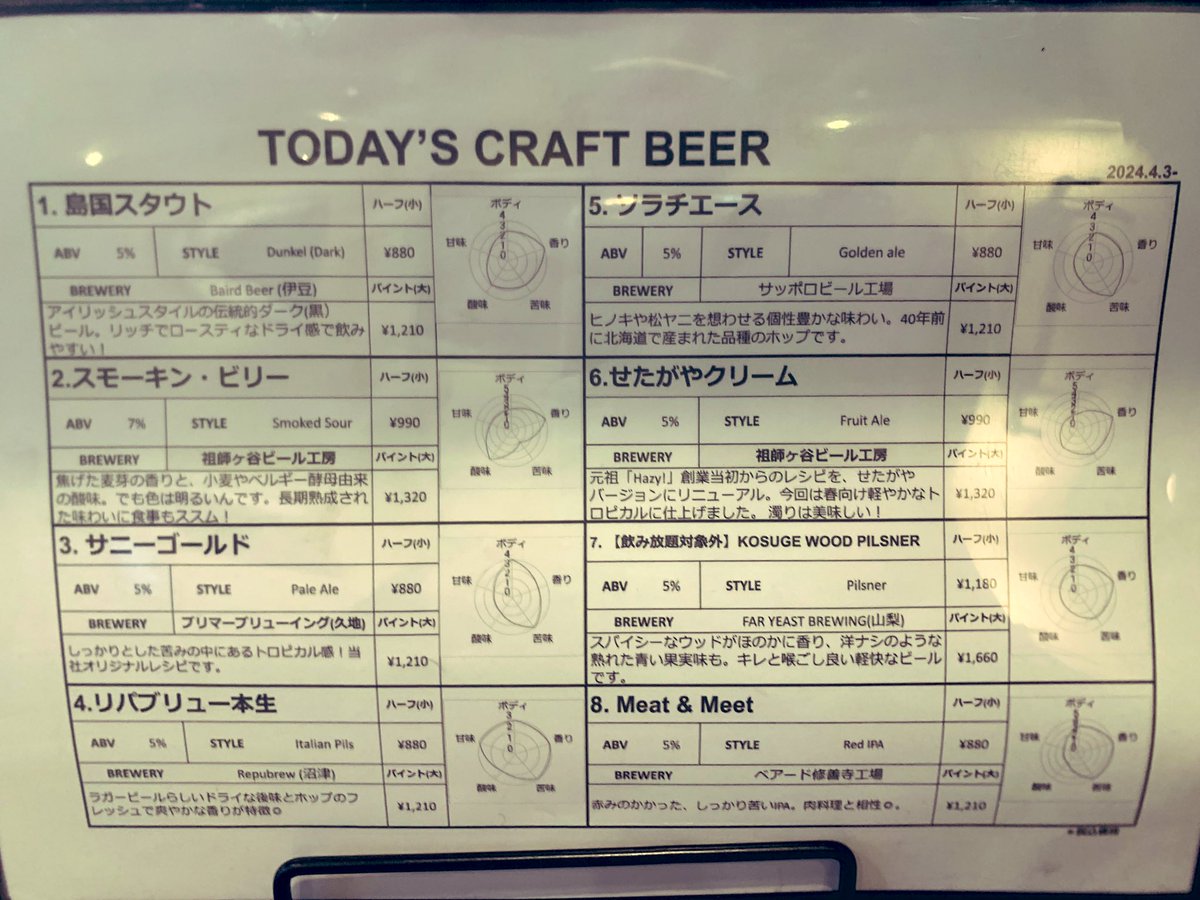 TODAY'S CRAFT BEER
2024.4.3-
1. 島国スタウト
ハーフ(小)
ABV 5% STYLE Dunkel (Dark) ¥880
BREWERY Baird Beer (伊豆) パイント(大)
アイリッシュスタイルの伝統的ダーク(黒)
ビール。リッチでロースティなドライ感で飲み
やすい！
¥1,210
ボディ
4
3
2
1
0
甘味 香り
酸味 苦味
2.スモーキン・ビリー
ハーフ(小)
ABV 7% STYLE Smoked Sour ¥990
BREWERY 祖師ヶ谷ビール工房 パイント(大)
焦げた麦芽の香りと、小麦やベルギー酵母由来
の酸味。でも色は明るいんです。長期熟成され
た味わいに食事もススム！
¥1,320
ボディ
甘味 香り
酸味 苦味
3. サニーゴールド
ハーフ(小)
ABV 5% STYLE Pale Ale ¥880
BREWERY ブリマーブリューイング(久地) パイント(大)
しっかりとした苦みの中にあるトロピカル感！当
社オリジナルレシピです。
¥1,210
ボディ
4
3
2
1
0
甘味 香り
酸味 苦味
4.リパブリュー本生
ハーフ(小)
ABV 5% STYLE Italian Pils ¥880
BREWERY Repubrew (沼津) パイント(大)
ラガービールらしいドライな後味とホップのフ
レッシュで爽やかな香りが特徴◎
¥1,210
ボディ
3
2
1
0
甘味 香り
酸味 苦味
5. ソラチエース
ハーフ(小)
ABV 5% STYLE Golden ale ¥880
BREWERY サッポロビール工場 パイント(大)
ヒノキや松ヤニを想わせる個性豊かな味わい。40年前
に北海道で産まれた品種のホップです。
¥1,210
ボディ
4
3
2
1
0
甘味 香り
酸味 苦味
6.せたがやクリーム
ハーフ(小)
ABV 5% STYLE Fruit Ale ¥990
BREWERY 祖師ヶ谷ビール工房 パイント(大)
元祖「Hazy!」創業当初からのレシピを、せたがや
バージョンにリニューアル。今回は春向け軽やかなト
ロピカルに仕上げました。 濁りは美味しい！
¥1,320
ボディ
甘味 香り
酸味 苦味
7. 【飲み放題対象外】KOSUGE WOOD PILSNER
ハーフ(小)
ABV 5% STYLE Pilsner ¥1,180
BREWERY FAR YEAST BREWING(山梨) パイント(大)
スパイシーなウッドがほのかに香り、洋ナシのような
熟れた青い果実味も。キレと喉ごし良い軽快なビール
です。
¥1,660
ボディ
4
3
2
1
0
甘味 香り
酸味 苦味
8. Meat & Meet
ハーフ(小)
ABV 5% STYLE Red IPA ¥880
BREWERY ベアード修善寺工場 パイント(大)
赤みのかかった、しっかり苦いIPA。肉料理と相性◎。
¥1,210
ボディ
甘味 香り
酸味 苦味